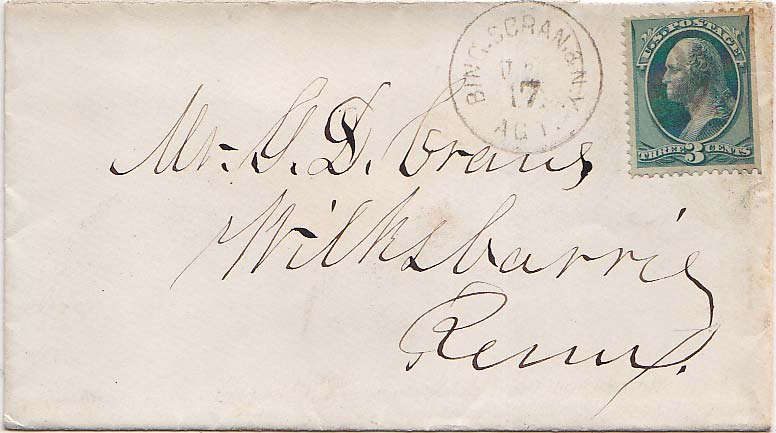 BING. SCRAN. & N.Y.
17
AGT.
U.S. POSTAGE
THREE 3 CENTS
Mr. G. D. Crans
Wilksbarrie
Penn.